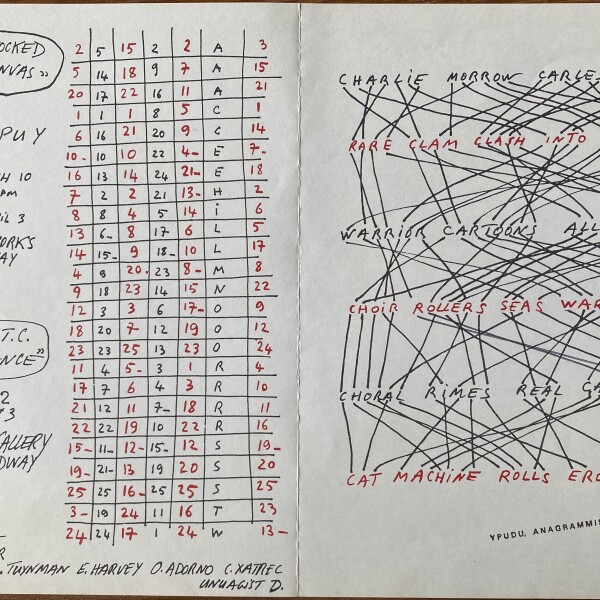 OCKED
NVAS »
PUY
H 10
PM
IL 3
ORK'S
AY
T.C.
NCE"
2
73
GALLERY
DWAY
R
2 5 15 2 2 A 3
5 14 18 9 7 A 15
20 17 22 16 11 A 21
1 1 1 8 5 C 1
6 16 21 20 9 C 14
10- 10 10 22 4- E 7-
16 13 14 24 21- E 18
7 2 2 21 13- H 2
8 8 4 5 14 i 6
13 6- 8 17 6 L 5
14 15- 9 18- 10 L 17
4 9 20- 23 8- M 8
9 18 23 14 15 N 22
12 3 3 6 17- O 9
18 20 7 12 19 O 12
23 23 25 13 23 O 24
11 4 5- 3 1 R 4
17 7 6 4 3 R 10
21 12 11 7- 18 R 11
22 22 19 10 22 R 16
15- 11- 12- 15- 12 S 19-
19- 21- 13 19 20 S 20
25 25 16- 25 25 S 25
3- 19 24 11 16 T 23
24 24 17 1 24 W 13-
. TUYNMAN E. HARVEY O. ADORNO C. XATREC
UNUAGST D.
CHARLIE MORROW CARLE
RARE CLAM CLASH INTO
WARRIOR CARTOONS ALL
CHOIR ROLLERS SEAS WAR
CHORAL RIMES REAL CA
CAT MACHINE ROLLS ERO
YPUDU, ANAGRAMMIS